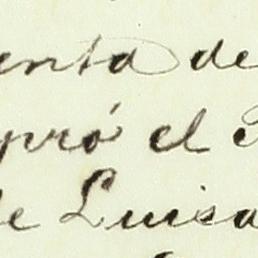 enta de
pró el
de Luisa